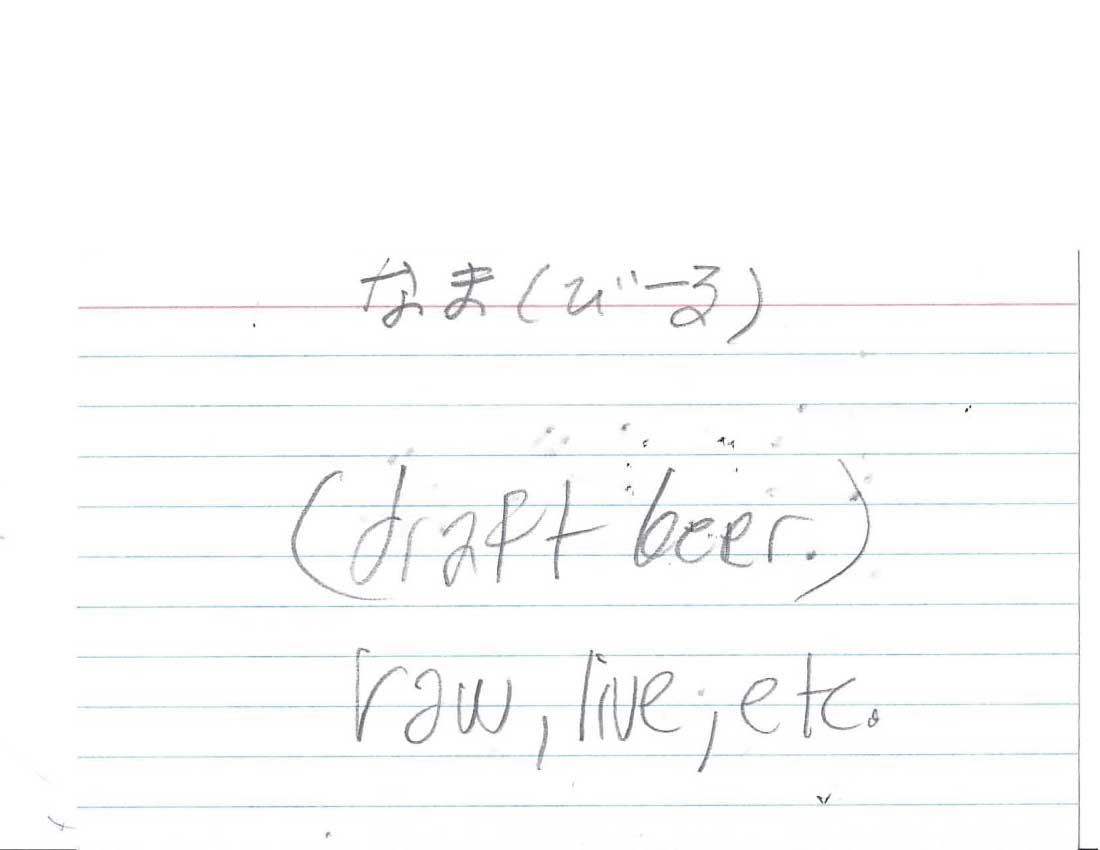 なま(びーる)
(draft beer.)
raw, live, etc.